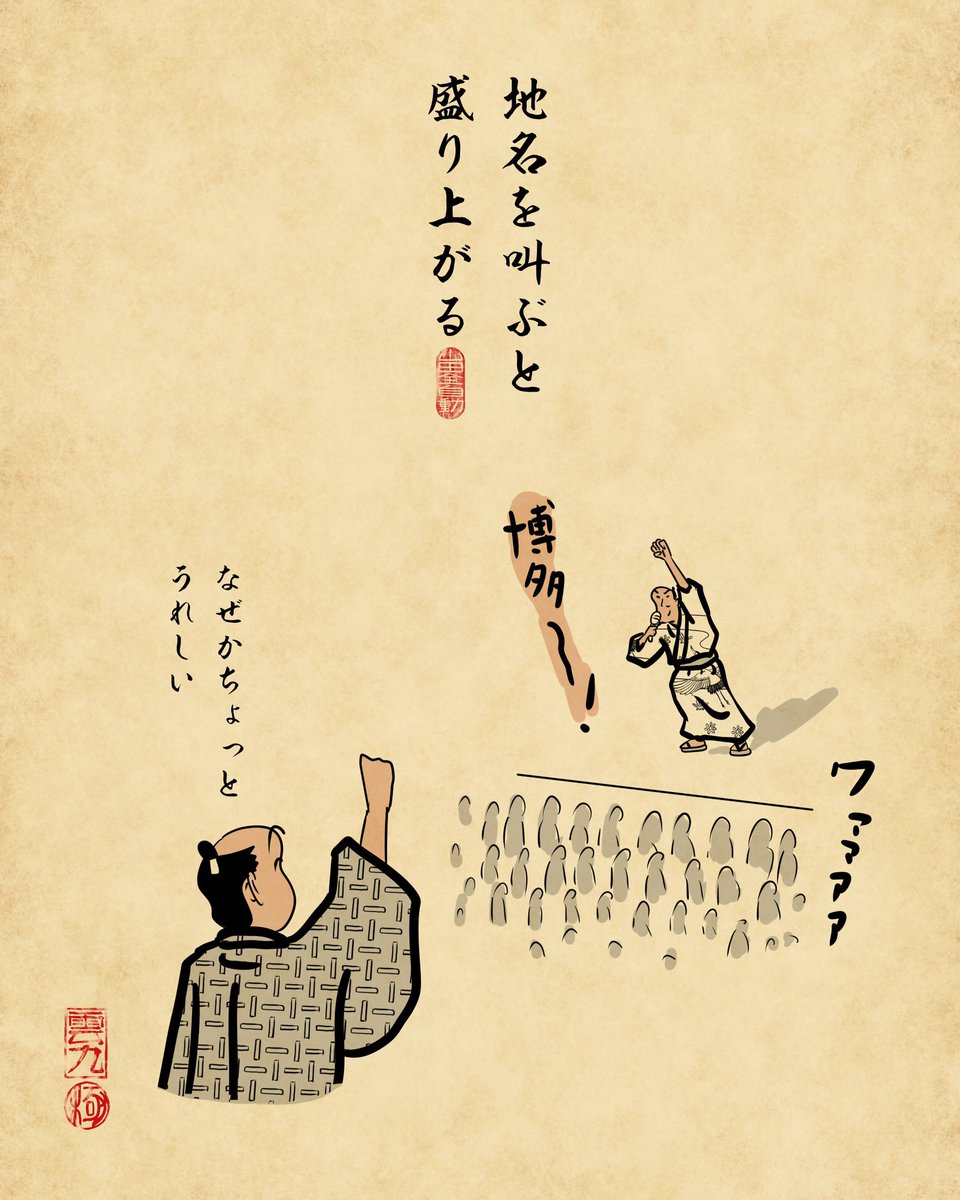 地名を叫ぶと
盛り上がる
博多〜！
ワァァァァ
なぜかちょっと
うれしい